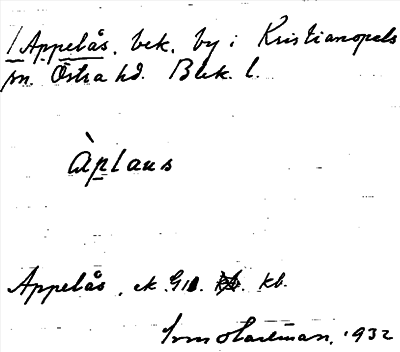 Appelås. bek. by i Kristianopels
sn. Östra hd. Blek. l.
àplaus
Appelås, ek G11. kb.
Hartman, 1932